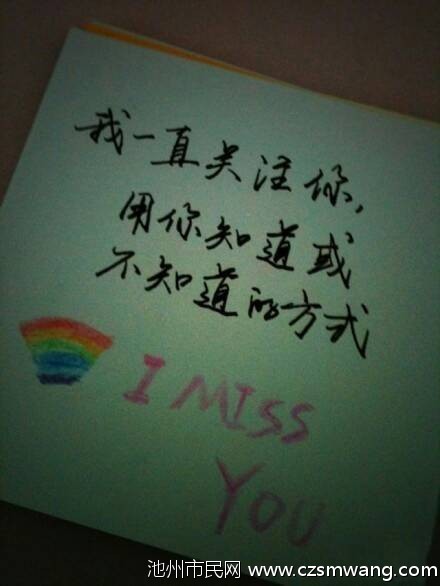 我一直关注你,
用你知道或
不知道的方式
I MISS
YOU
池州市民网 www.czsmwang.com